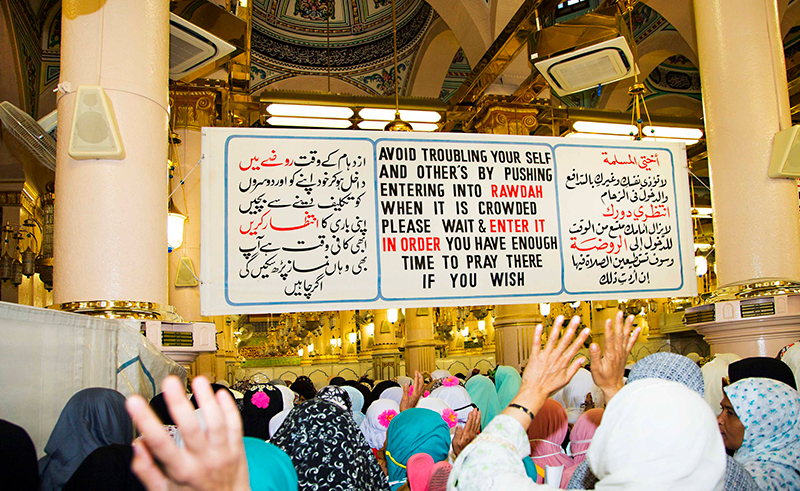 ازدہام کے وقت روضے میں
داخل ہو کر خود اپنے کو اور دوسروں
کو تکلیف دینے سے بچیں
اپنی باری کا انتظار کریں
ابھی کافی وقت ہے آپ
بھی وہاں نماز پڑھ سکیں گی
اگر چاہیں
AVOID TROUBLING YOUR SELF
AND OTHER'S BY PUSHING
ENTERING INTO RAWDAH
WHEN IT IS CROWDED
PLEASE WAIT & ENTER IT
IN ORDER YOU HAVE ENOUGH
TIME TO PRAY THERE
IF YOU WISH
أختي المسلمة
لا تؤذي نفسك وغيرك بالتدافع
والدخول في الزحام
انتظري دورك
لا يزال أمامك متسع من الوقت
للدخول إلى الروضة
وسوف تستطيعين الصلاة فيها
إن أردت ذلك